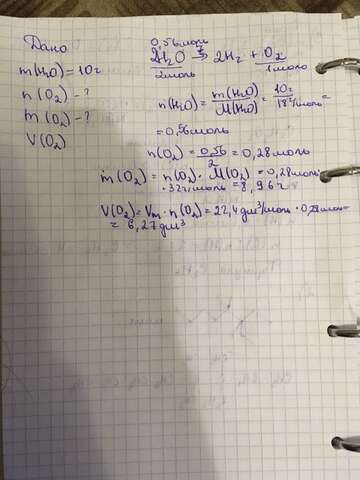 Дано
m(H₂O)=10г
n(O₂)-?
m(O₂)-?
V(O₂)
0,56моль
2H₂O → 2H₂ + O₂
2моль 1моль
n(H₂O)=m(H₂O)/M(H₂O)=10г/18г/моль=
=0,56моль
n(O₂)=0,56/2=0,28моль
m(O₂)=n(O₂)·M(O₂)=0,28моль·
·32г/моль=8,96г
V(O₂)=Vm·n(O₂)=22,4дм³/моль·0,28моль=
=6,27дм³